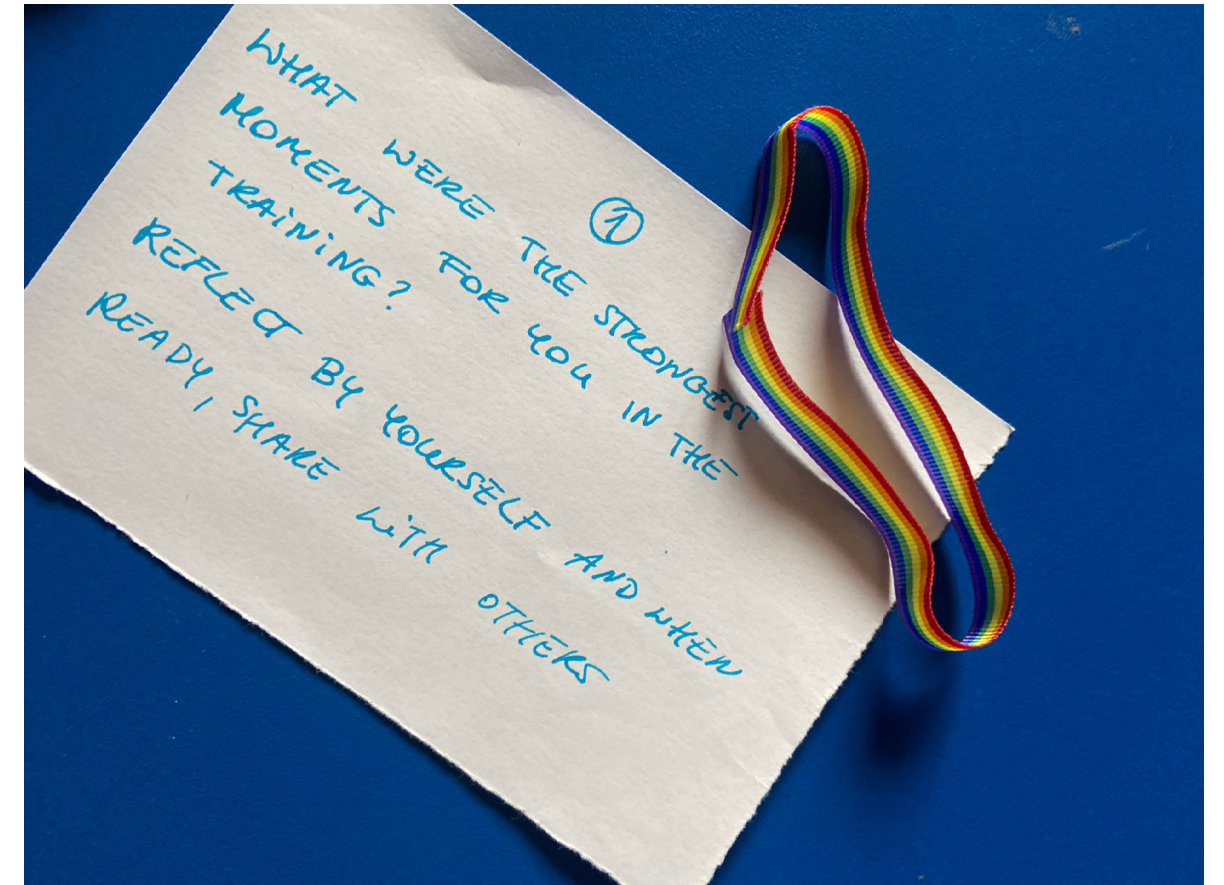 ①
WHAT WERE THE STRONGEST
MOMENTS FOR YOU IN THE
TRAINING?
REFLECT BY YOURSELF AND WHEN
READY, SHARE WITH OTHERS